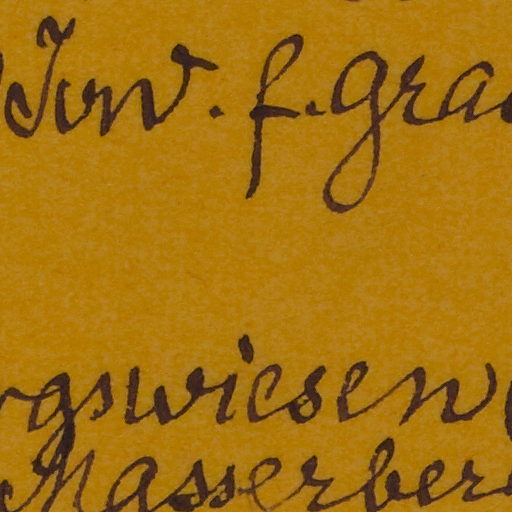 Torv. f. grac
rgswiesen
Masserber